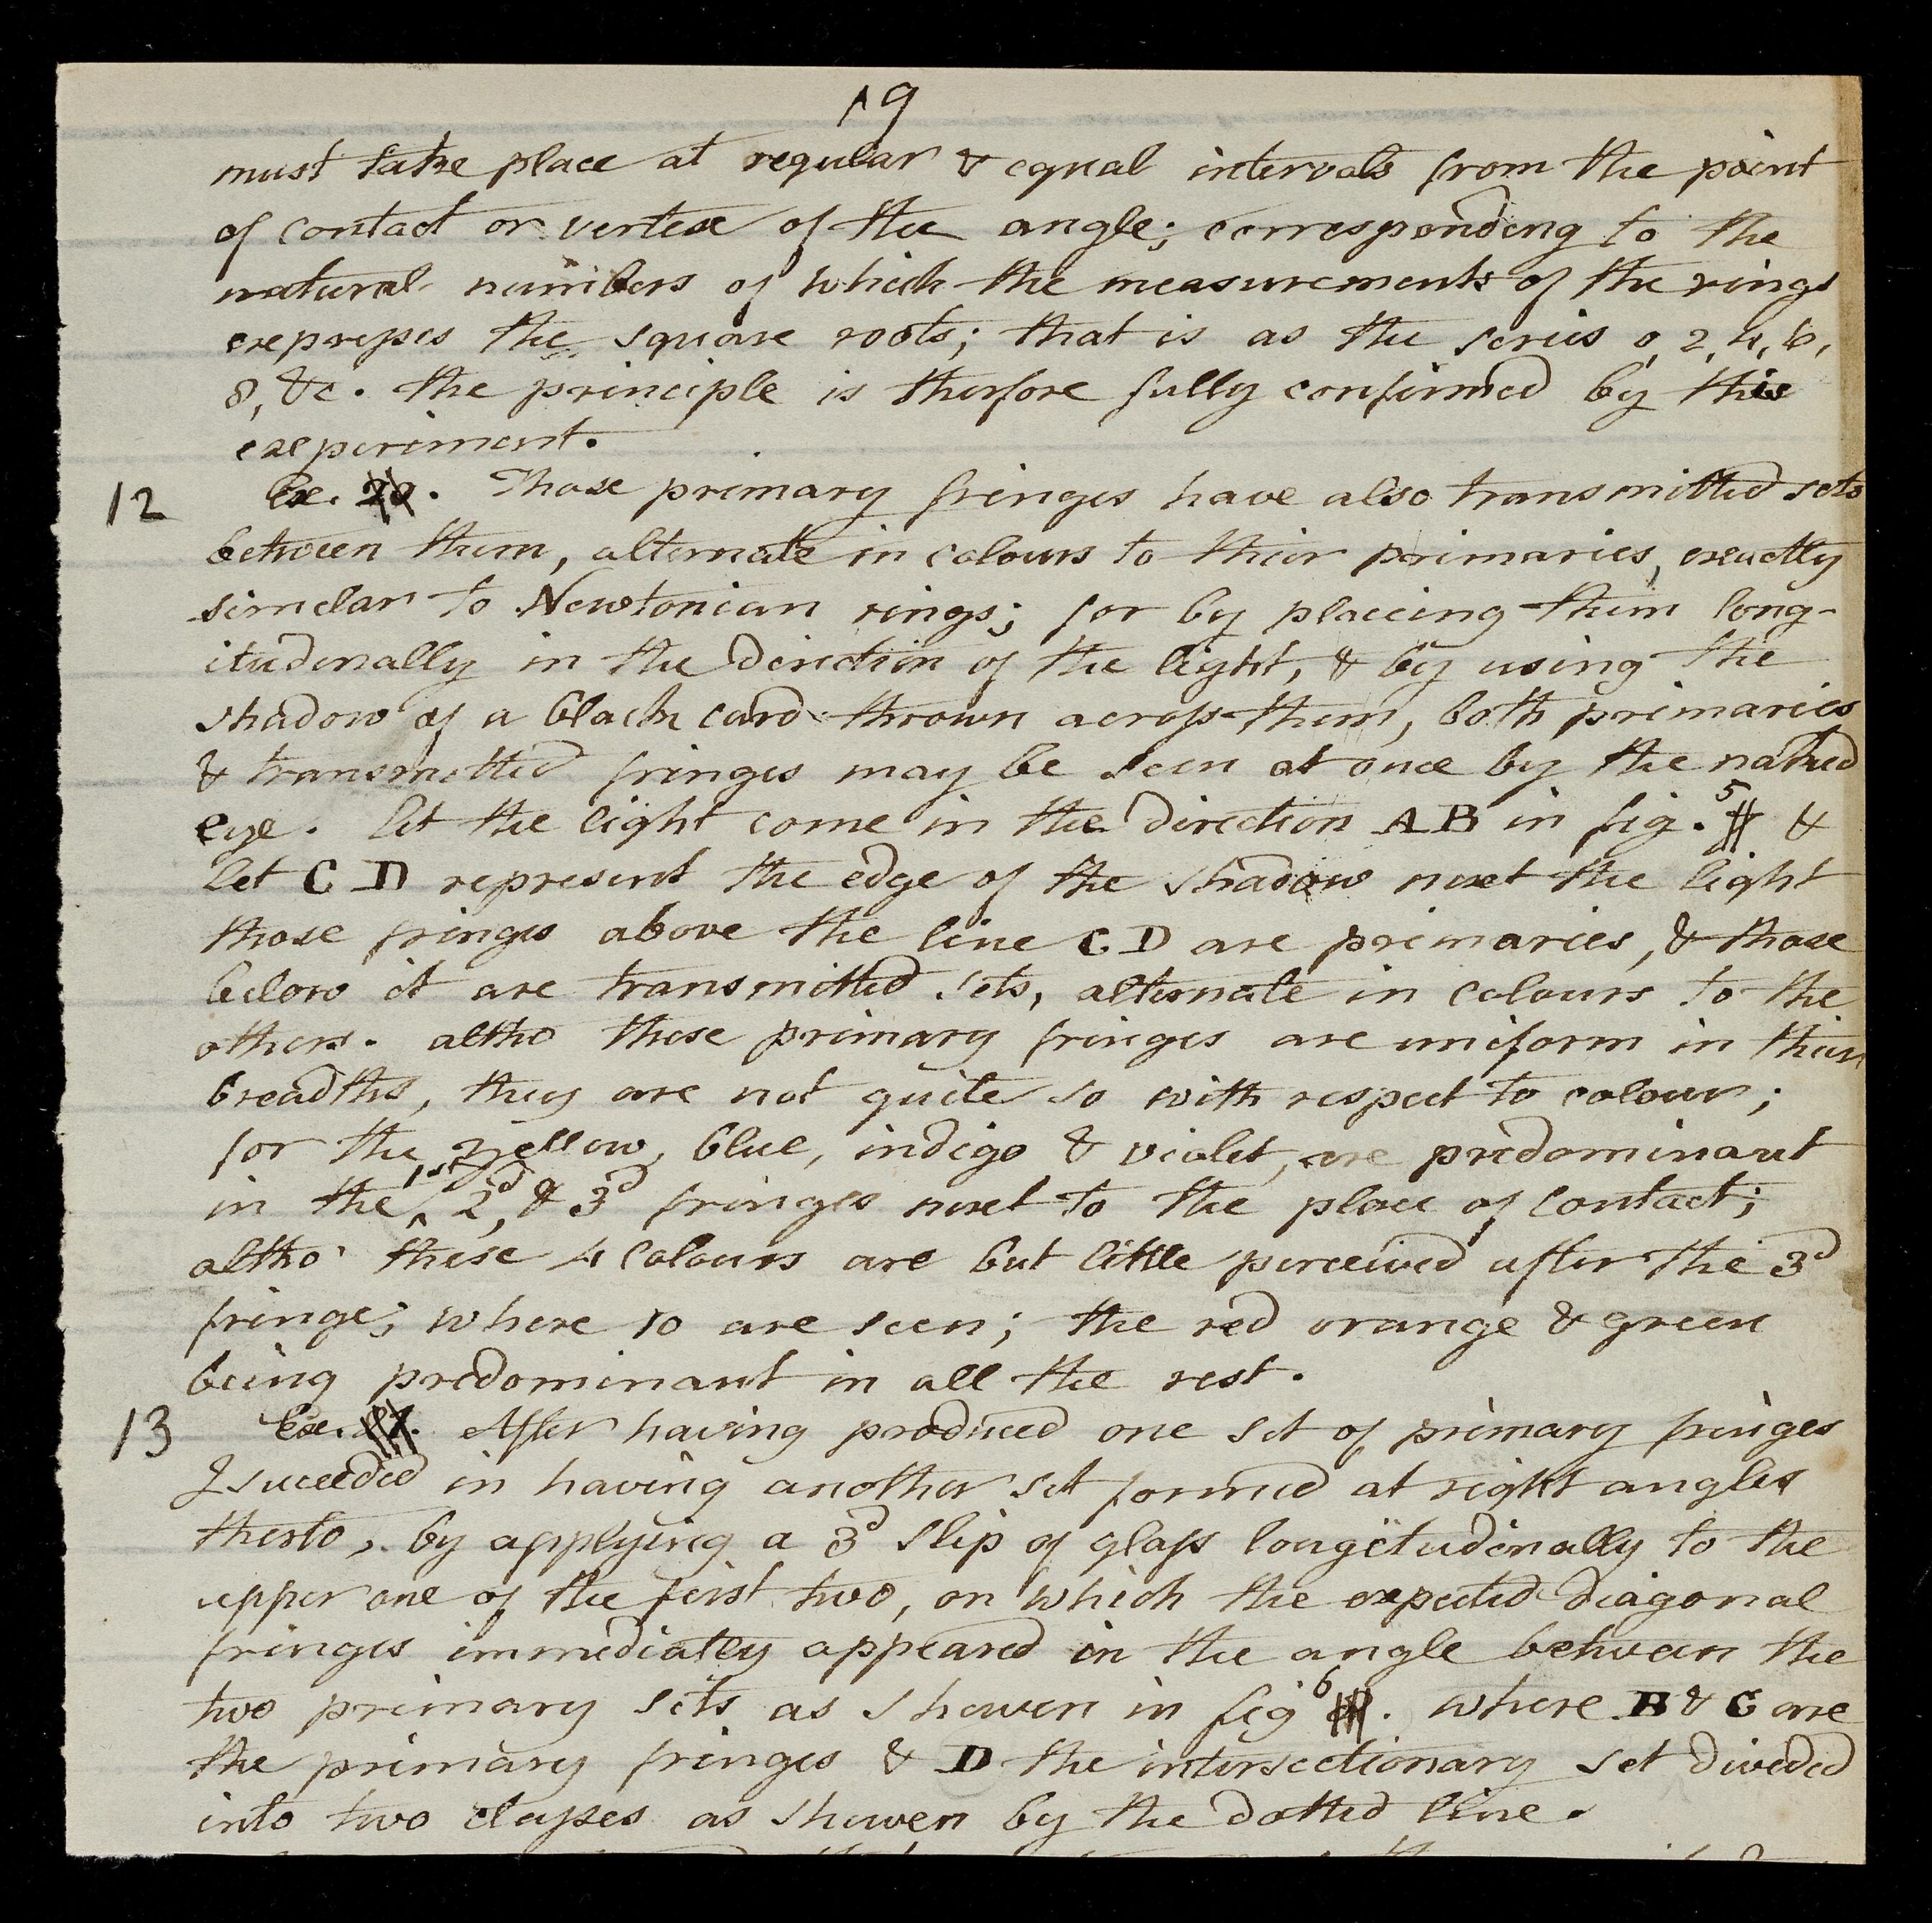 19
must take place at regular & equal intervals from the point
of contact or vertex of the angle; corresponding to the
natural numbers of which the measurements of the rings
expresses the square roots; that is as the series 0, 2, 4, 6,
8, &c. the principle is therfore fully confirmed by this
experiment.
12 Ex. 20. Those primary fringes have also transmitted sets
between them, alternate in colours to thier primaries, exactly
similar to Newtonian rings; for by placeing them long-
itudinally in the direction of the light, & by using the
shadow of a black card thrown across them, both primaries
& transmitted fringes may be seen at once by the naked
eye. let the light come in the direction AB in fig. 5 &
let C D represent the edge of the shadow next the light
those fringes above the line C D are primaries, & those
below it are transmitted sets, alternate in colours to the
others. altho these primary fringes are uniform in thier
breadths, they are not quite so with respect to colour;
for the yellow, blue, indigo & violet, are predominant
in the 1st 2d, & 3d fringes next to the place of contact;
altho' these 4 colours are but little perceived after the 3d
fringe; where 10 are seen; the red orange & green
being predominant in all the rest.
13 Ex. After having produced one set of primary fringes
I suceeded in having another set formed at right angles
therto, by applying a 3d slip of glass longitudinally to the
upper one of the first two, on which the expected diagonal
fringes immediatly appeared in the angle between the
two primary sets as shewen in fig 6. where B & C are
the primary fringes & D the intersectionary set diveded
into two classes as shewen by the dotted line.